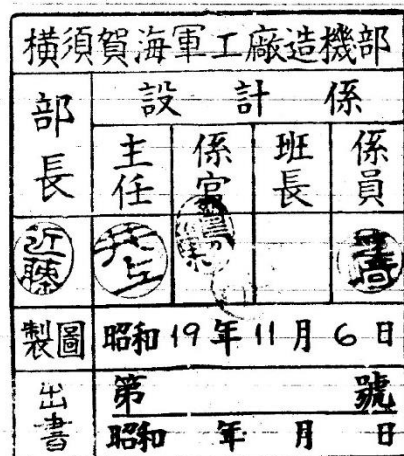 横須賀海軍工廠造機部
部長
設計係
主任
係官
班長
係員
近藤
製圖 昭和19年11月6日
出書
第 號
昭和 年 月 日